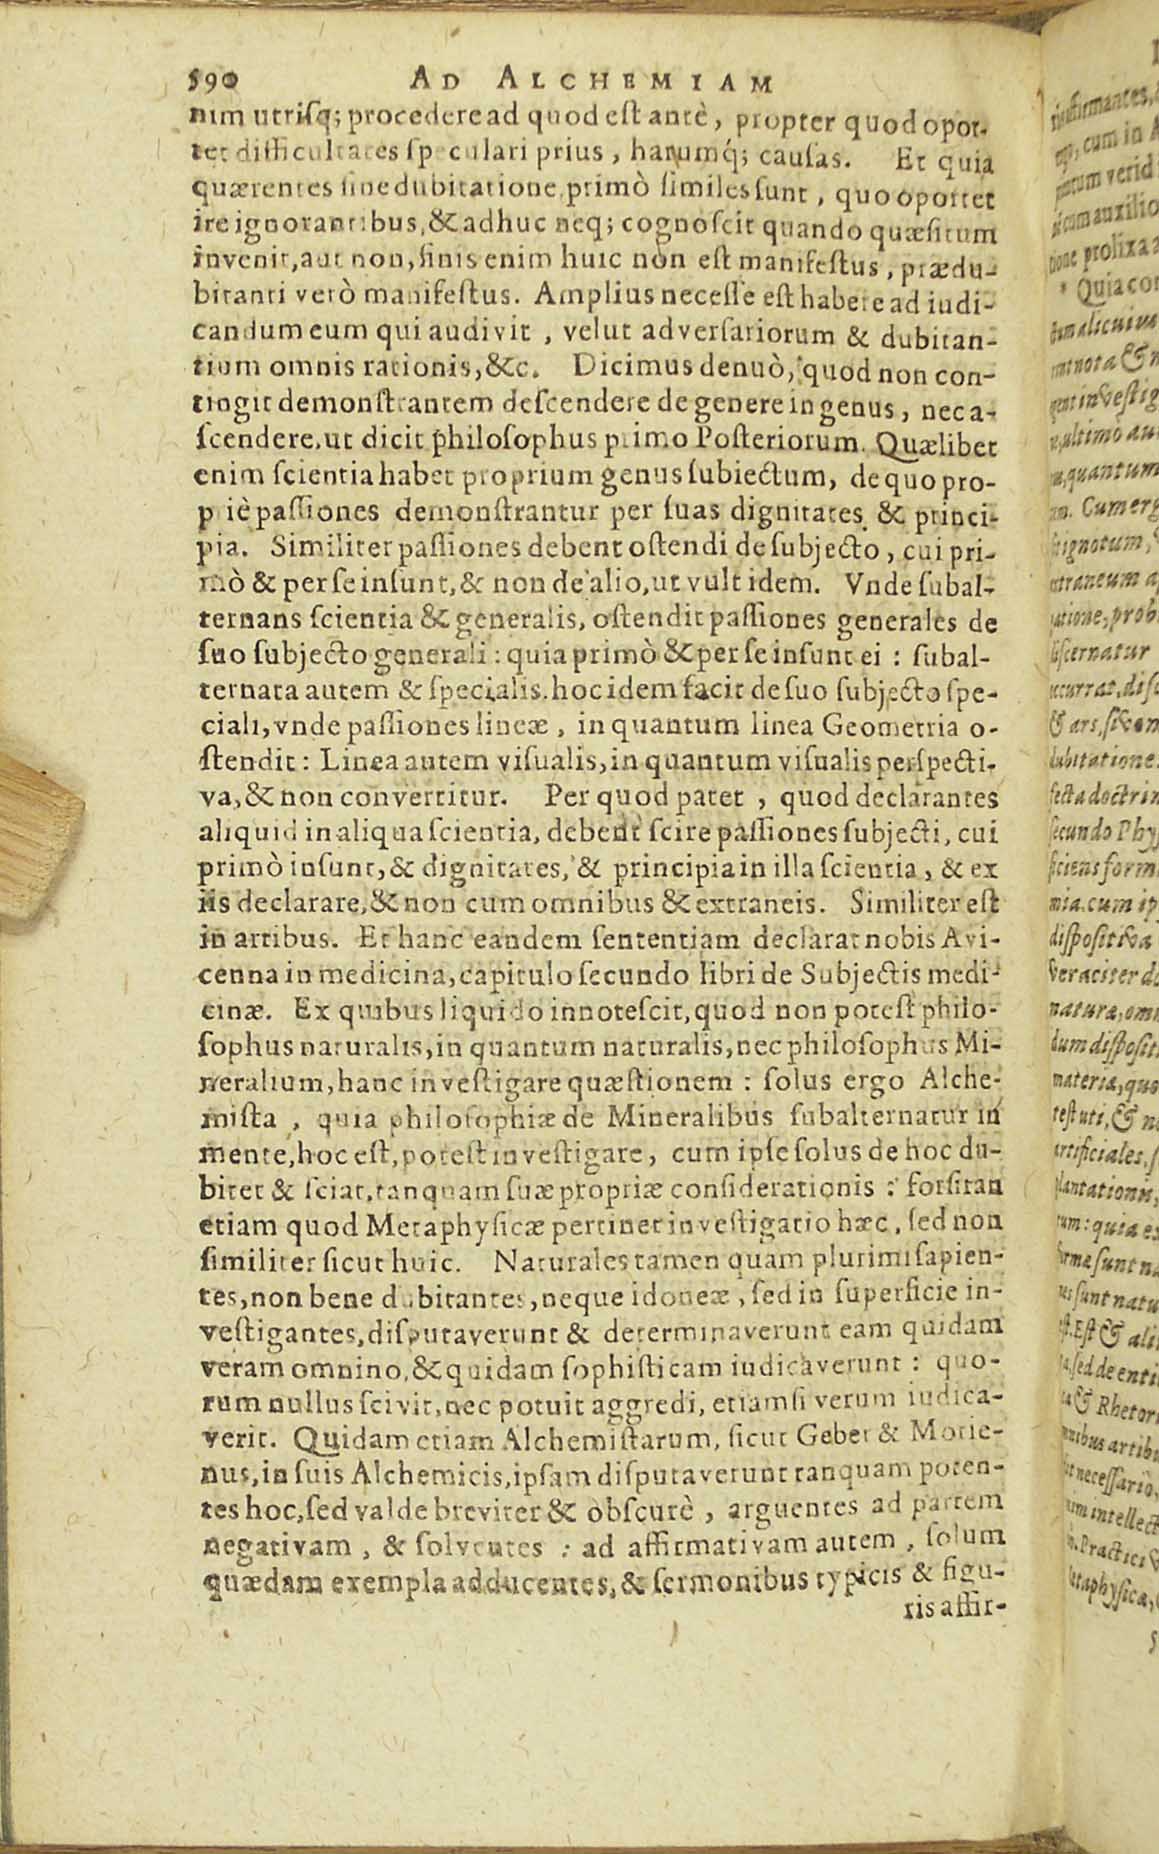 590 AD ALCHEMIAM
nim utrisq; procedere ad quod est antè, propter quod opor-
tet difficultates speculari prius, harumq́; causas. Et quia
quærentes sine dubitatione primò similes sunt, quo oportet
ire ignorantibus, & adhuc neq; cognoscit quando quæsitum
invenit, aut non, finis enim huic non est manifestus, prædu-
bitanti verò manifestus. Amplius necesse est habere ad iudi-
candum eum qui audivit, velut adversariorum & dubitan-
tium omnis rationis, &c. Dicimus denuò, quod non con-
tingit demonstrantem descendere de genere in genus, nec a-
scendere, ut dicit philosophus primo Posteriorum. Quælibet
enim scientia habet proprium genus subiectum, de quo pro-
p iè passiones demonstrantur per suas dignitates & princi-
pia. Similiter passiones debent ostendi de subjecto, cui pri-
mò & per se insunt, & non de alio, ut vult idem. Vnde subal-
ternans scientia & generalis, ostendit passiones generales de
suo subjecto generali: quia primò & per se insunt ei: subal-
ternata autem & specialis. hoc idem facit de suo subjecto spe-
ciali, vnde passiones lineæ, in quantum linea Geometria o-
stendit: Linea autem visualis, in quantum visualis perspecti-
va, & non convertitur. Per quod patet, quod declarantes
aliquid in aliqua scientia, debent scire passiones subjecti, cui
primò insunt, & dignitates, & principia in illa scientia, & ex
iis declarare, & non cum omnibus & extraneis. Similiter est
in artibus. Et hanc eandem sententiam declarat nobis Avi-
cenna in medicina, capitulo secundo libri de Subjectis medi-
cinæ. Ex quibus liquido innotescit, quod non potest philo-
sophus naturalis, in quantum naturalis, nec philosophus Mi-
neralium, hanc investigare quæstionem: solus ergo Alche-
mista, quia philosophiæ de Mineralibus subalternatur in
mente, hoc est, potest investigare, cum ipse solus de hoc du-
bitet & sciat, tanquam suæ propriæ considerationis: forsitan
etiam quod Metaphysicæ pertinet investigatio hæc, sed non
similiter sicut huic. Naturales tamen quam plurimi sapien-
tes, non bene dubitantes, neque idoneæ, sed in superficie in-
vestigantes, disputaverunt & determinaverunt eam quidam
veram omnino, & quidam sophisticam iudicaverunt: quo-
rum nullus scivit, nec potuit aggredi, etiamsi verum iudica-
verit. Quidam etiam Alchemistarum, sicut Geber & Morie-
nus, in suis Alchemicis, ipsam disputaverunt tanquam poten-
tes hoc, sed valde breviter & obscurè, arguentes ad partem
negativam, & solventes: ad affirmativam autem, solum
quædam exempla adducentes, & sermonibus typicis & figu-
ris affir-
affirmantes,
cum in A
verid
auxilio
tione prolixa a
Quia con
alicui
nota & n
gent investig
ultimo au
quantum
Cum erg
ignotum,
extraneum a
prob
discernatur
occurrat, dis
& ars, sive
dubitatione
fecta doctrin
secundo Phy
ficiens form
nia. cum ip
dispositiva
veraciter de
natura, omn
dum disposit
materia, quo
test uti, & n
artificiales, s
plantationis,
rum: quia ex
formæ sunt na
sunt natu
est. Est & ali
sed de enti
& Rhetor
omnibus artibu
necessario,
intellect
Practici
Metaphysicæ,